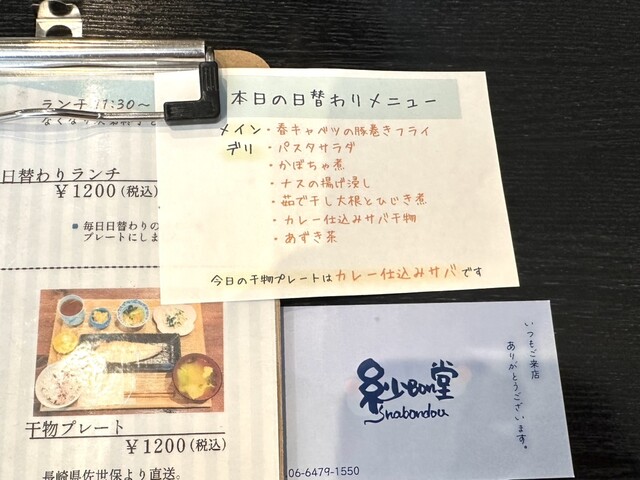 ランチ 11:30～
日替わりランチ
￥1200(税込)
毎日日替わりの
プレートにしま
干物プレート
￥1200(税込)
長崎県佐世保より直送。
本日の日替わりメニュー
メイン・春キャベツの豚巻きフライ
デリ・パスタサラダ
・かぼちゃ煮
・ナスの揚げ浸し
・茹で干し大根とひじき煮
・カレー仕込みサバ干物
・あずき茶
今日の干物プレートはカレー仕込みサバです
いつもご来店
ありがとうございます。
紗bon堂
Shabondou
06-6479-1550